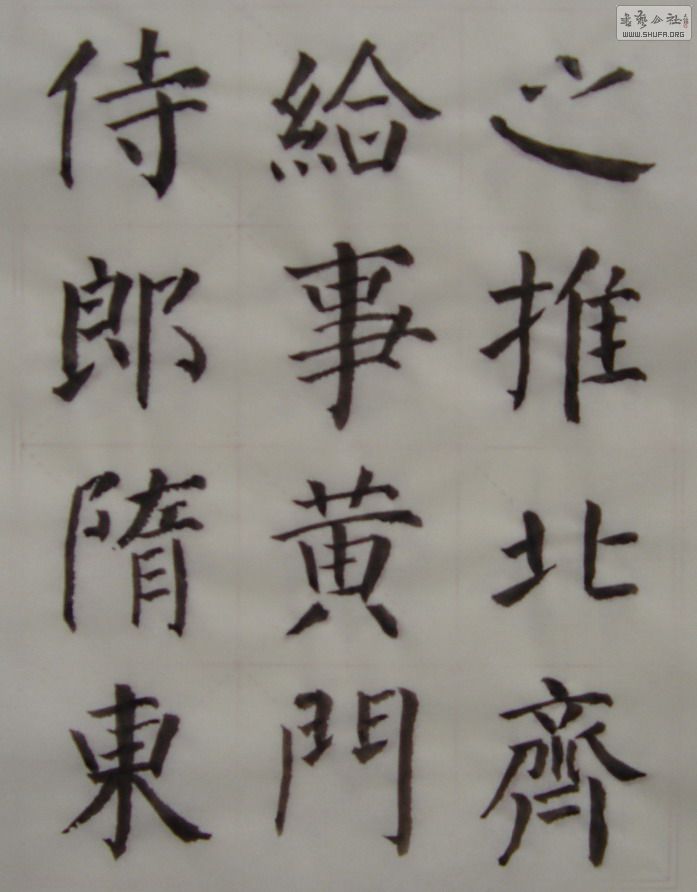 之推北齊
給事黄門
侍郎隋東
書藝公社
WWW.SHUFA.ORG